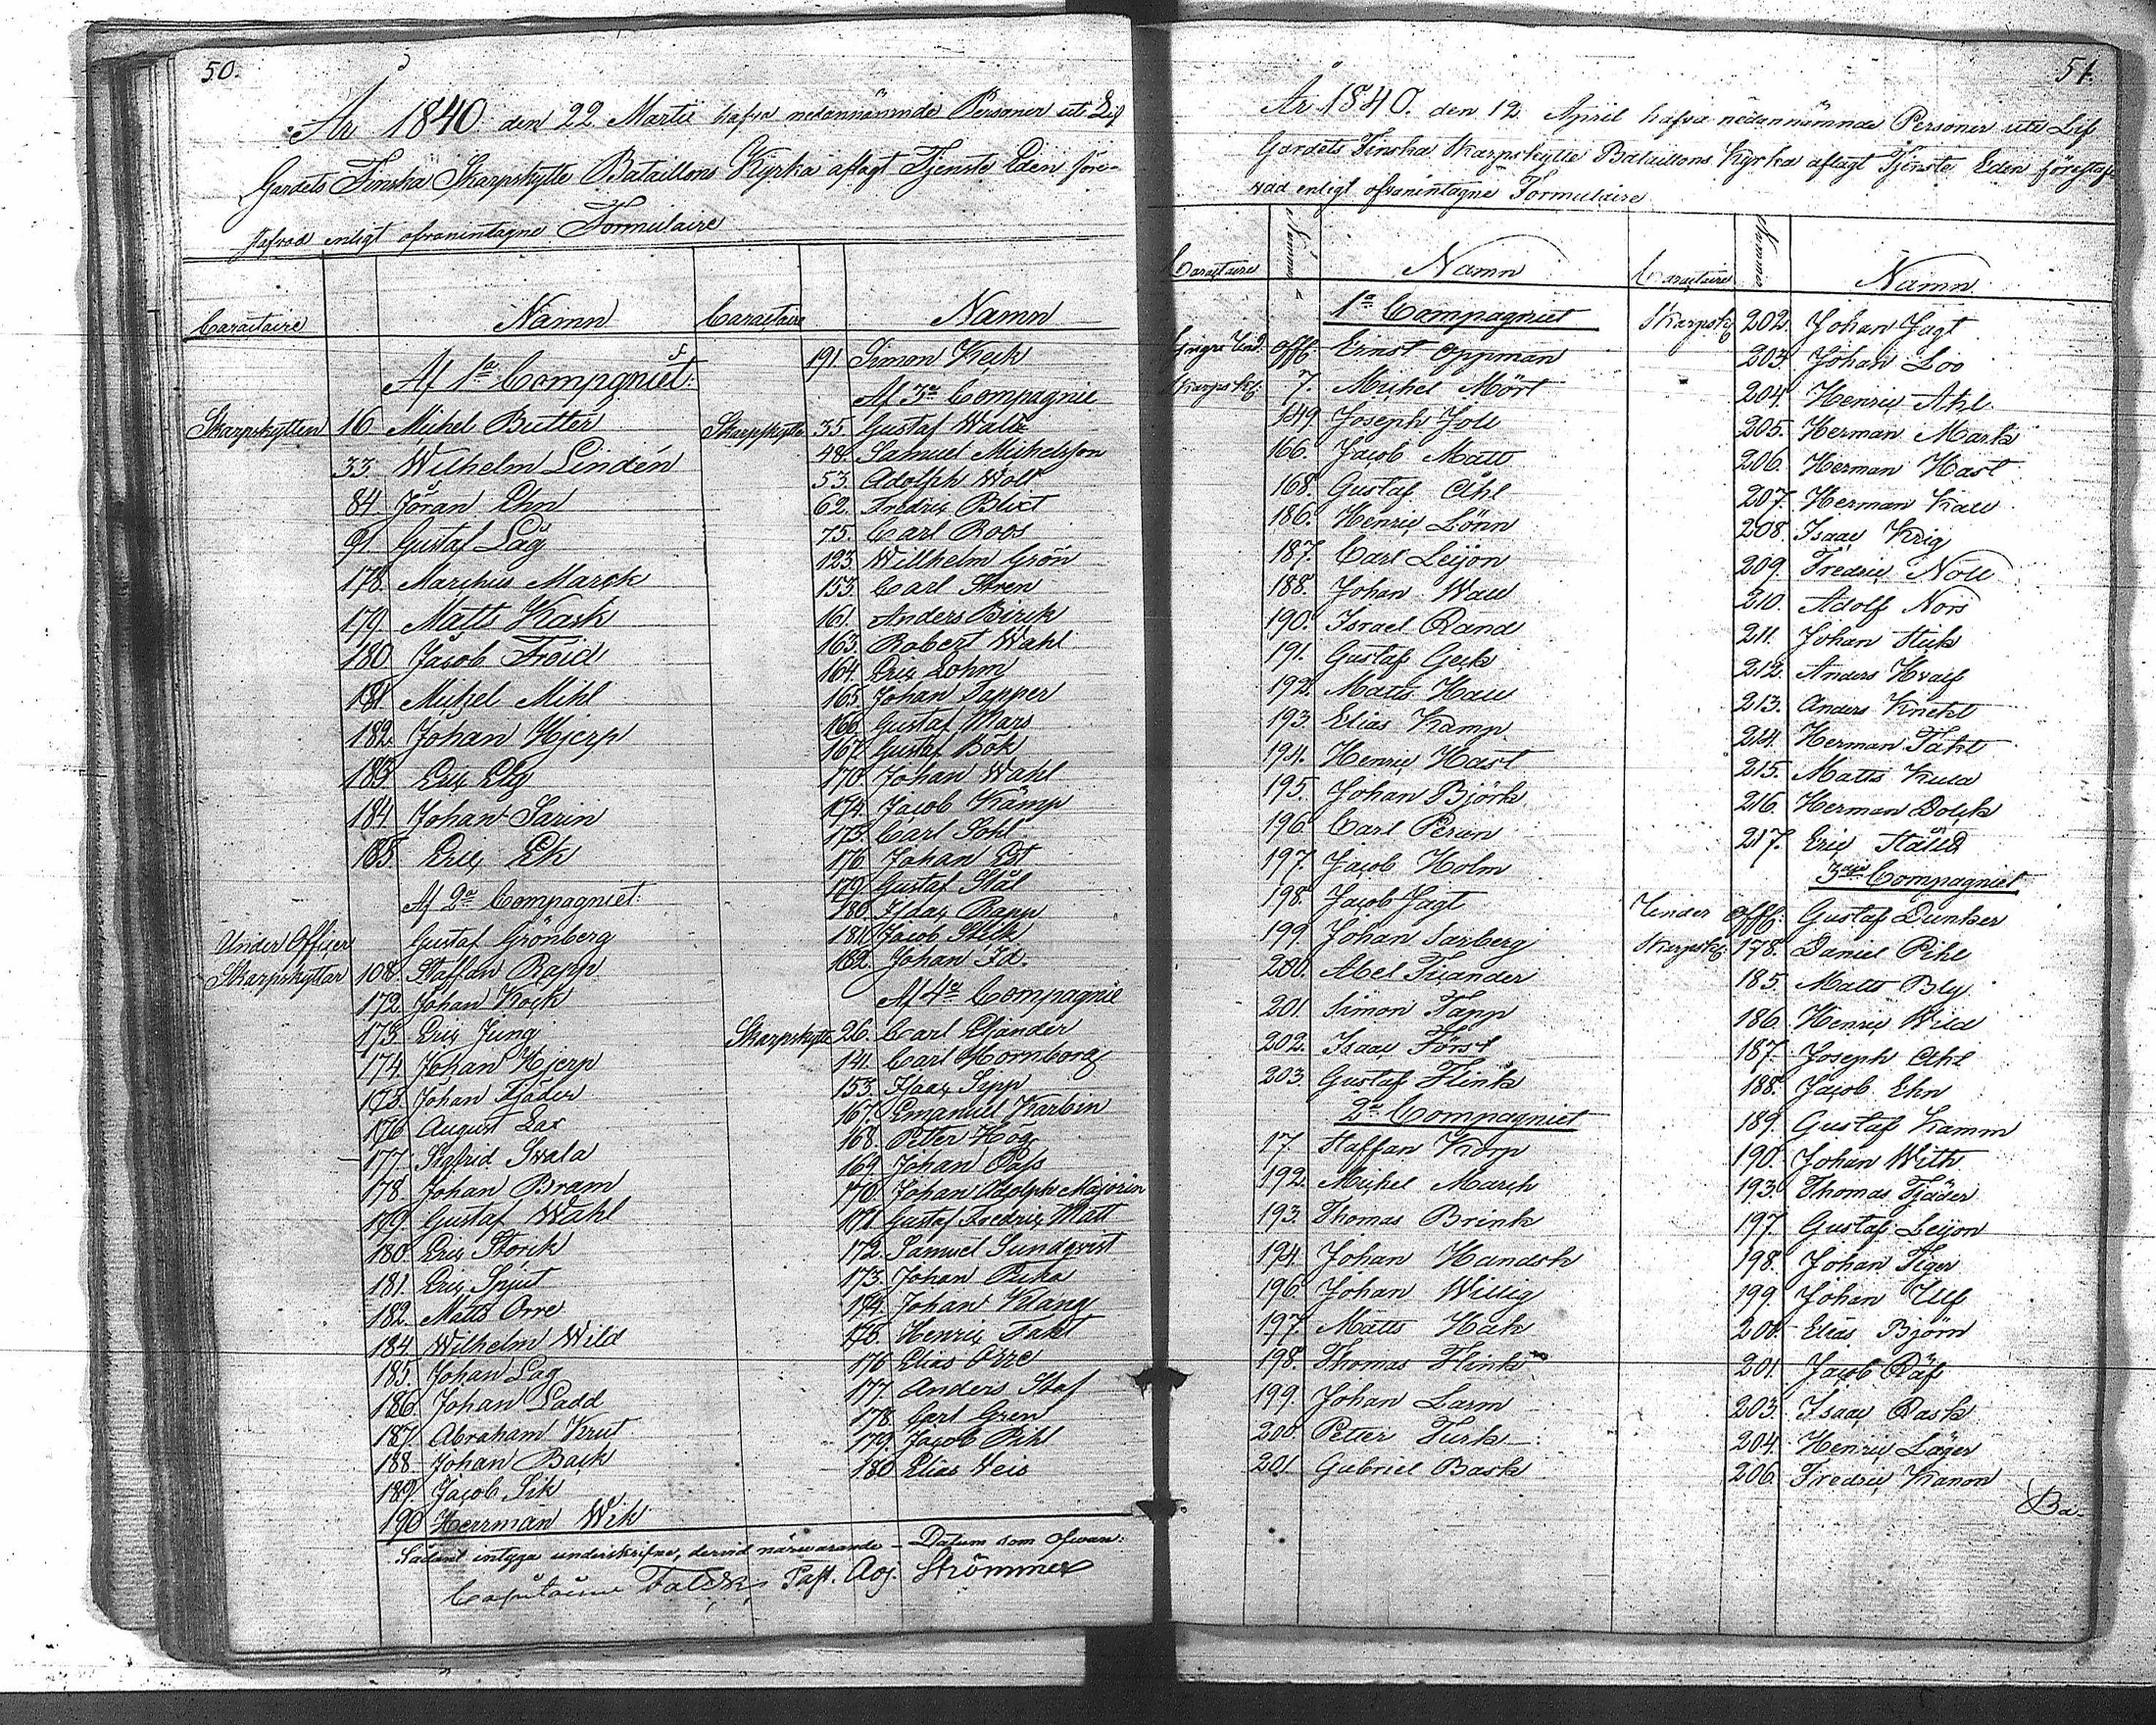 50.
År 1840 den 22 Martii hafva nedannämnde Personer uti Lif
Gardets Finska Skarpskytte Bataillons Kyrka aflagt Tjenste Eden före-
stafvad enligt ofvanintagne Formulaire
Caractaire Namn Caractaire Namn
Af 1a Compagniet:
Skarpskytten 16. Mihel Butter
33. Wilhelm Lindén
84. Jöran Ehn
91. Gustaf Låg
178. Marchus Marck
179. Matts Kask
180. Jacob Froid
181. Michel Mihl
182. Johan Hjerp
183. Eric Elg
184. Johan Sarin
185. Eric Ek
Af 2a Compagniet:
Under Officer Gustaf Grönberg
Skarpskyttar 108. Staffan Rapp
172. Johan Kock
173. Eric Jung
174. Johan Hjerp
175. Johan Tjäder
176. August Lax
177. Sigfrid Svala
178. Johan Bram
179. Gustaf Wahl
180. Eric Storck
181. Eric Spjut
182. Matts Orre
184. Wilhelm Wild
185. Johan Lag
186. Johan Ladd
187. Abraham Krut
188. Johan Back
189. Jacob Sik
190. Herrman Wik
191. Simon Keck
Af 3a Compagnie
Skarpskytte 35. Gustaf Wall
48. Samuel Michelsson
53. Adolph Wolt
62. Fredric Blixt
75. Carl Roos
123. Willhelm Grön
153. Carl Stren
161. Anders Birck
163. Robert Wahl
164. Eric Lohm
165. Johan Tapper
166. Gustaf Mars
167. Gustaf Bök
170. Johan Wahl
174. Jacob Kämp
175. Carl Sohl
176. Johan Est
179. Gustaf Stål
180. Isac Rapp
181. Jacob Stik
182. Johan Id.
Af 4a Compagnie
Skarpskytte 26. Carl Elfander
141. Carl Hornborg
153. Isaac Sipp
167. Emanuel Karbin
168. Petter Hög
169. Johan Pass
170. Johan Adolph Majorin
171. Gustaf Fredric Matt
172. Samuel Sundqvist
173. Johan Pika
174. Johan Klang
175. Henric Takt
176. Elias Orre
177. Anders Staf
178. Carl Gren
179. Jacob Pihl
180. Elias Veis
Sådant intyga underskrifne, dervid närwarande – Datum som ofwan:
Capitaine Falck, Past. Adj. Strömmer
51.
År 1840. den 12. April hafva nedannämnde Personer uti Lif
Gardets Finska Skarpskytte Bataillons Kyrka aflagt Tjenste Eden förestaf
vad enligt ofvanintagne Formulaire
Caractaire Nummer Namn Caractaire Nummer Namn
1a Compagniet
Yngre Und. Offc. Ernst Oppman
Skarpskt: 7. Michel Mört
149. Joseph Joll
166. Jacob Matt
168. Gustaf Ahl
186. Henric Lönn
187. Carl Leijon
188. Johan Wall
190. Israel Rand
191. Gustaf Geck
192. Matts Hall
193. Elias Kamp
194. Henric Hast
195. Johan Björk
196. Carl Perun
197. Jacob Holm
198. Jacob Jagt
199. Johan Sarberg
200. Abel Tuander
201. Simon Tapp
202. Isaac Först
203. Gustaf Flink
2a Compagniet
17. Staffan Korp
192. Michel March
193. Thomas Brink
194. Johan Handsk
196. Johan Willig
197. Matts Hak
198. Thomas Flink
199. Johan Larm
200. Petter Turk
201. Gabriel Bask
Skarpsk 202. Johan Jagt
203. Johan Loo
204. Henric Ahl
205. Herman Mark
206. Herman Hast
207. Herman Kall
208. Isaac Krig
209. Fredric Noll
210. Adolf Nors
211. Johan Stick
212. Anders Kvalf
213. Anders Knekt
214. Herman Takt
215. Matts Kula
216. Herman Dolck
217. Eric Ståhl
3dje Compagniet
Under Offc: Gustaf Dunker
Skarpsk: 178. Daniel Pihl
185. Matts Bly
186. Henric Wild
187. Joseph Ahl
188. Jacob Ehn
189. Gustaf Kamm
190. Johan With
193. Thomas Tjäder
197. Gustaf Leijon
198. Johan Tiger
199. Johan Ulf
200. Elias Björn
201. Jacob Räf
203. Isaac Rask
204. Henric Läger
206. Fredric Kanon
Ba-